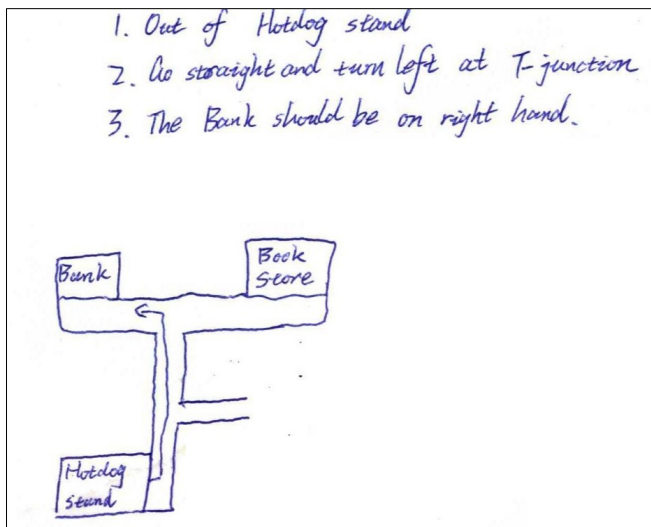 1. Out of Hotdog stand
2. Go straight and turn left at T-junction
3. The Bank should be on right hand.
Bank
Book
Store
Hotdog
stand